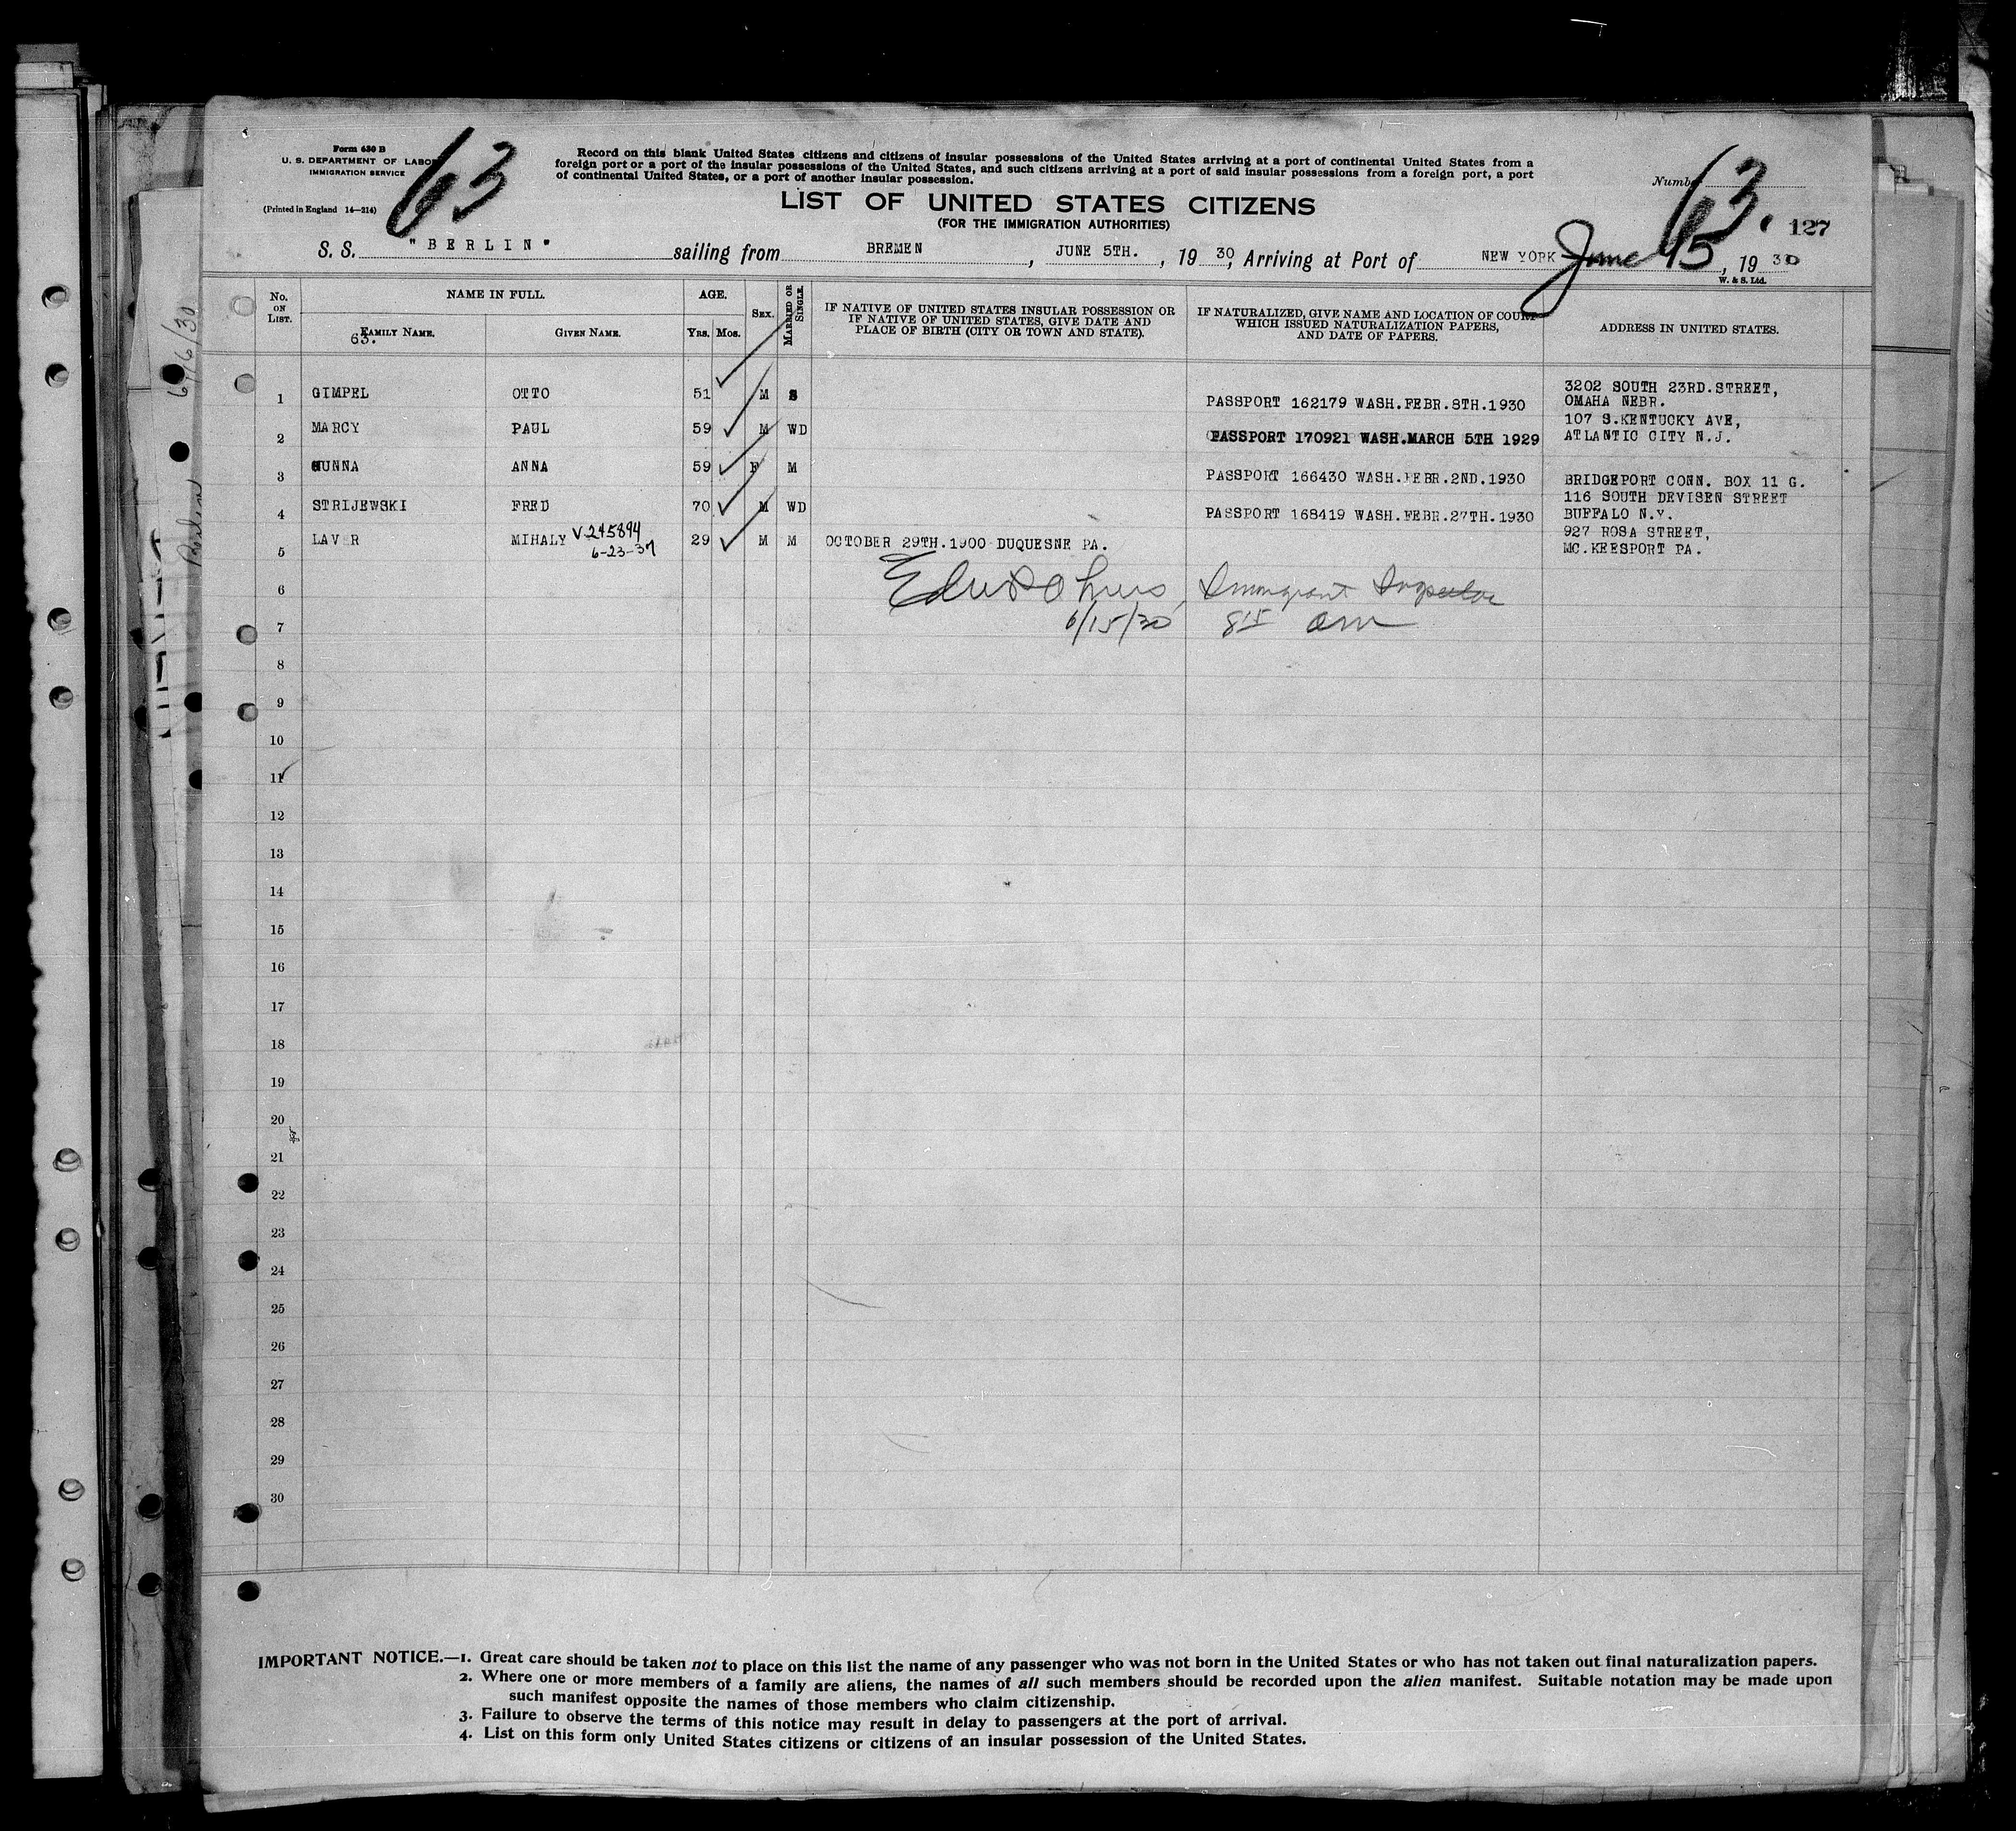 Form 630 B
U. S. DEPARTMENT OF LABOR
IMMIGRATION SERVICE
(Printed in England 14—214)
63
Record on this blank United States citizens and citizens of insular possessions of the United States arriving at a port of continental United States from a
foreign port or a port of the insular possessions of the United States, and such citizens arriving at a port of said insular possessions from a foreign port, a port
of continental United States, or a port of another insular possession.
LIST OF UNITED STATES CITIZENS
(FOR THE IMMIGRATION AUTHORITIES)
Numb 63. 127
S. S. "BERLIN" sailing from BREMEN, JUNE 5TH., 1930, Arriving at Port of NEW YORK June 15, 1930
W. & S. Ltd.
No. ON LIST. NAME IN FULL. AGE. SEX. MARRIED OR SINGLE.
FAMILY NAME. GIVEN NAME. YRS. MOS.
63.
IF NATIVE OF UNITED STATES INSULAR POSSESSION OR
IF NATIVE OF UNITED STATES, GIVE DATE AND
PLACE OF BIRTH (CITY OR TOWN AND STATE).
IF NATURALIZED, GIVE NAME AND LOCATION OF COURT
WHICH ISSUED NATURALIZATION PAPERS,
AND DATE OF PAPERS.
ADDRESS IN UNITED STATES.
1 GIMPEL OTTO 51 M S PASSPORT 162179 WASH.FEBR.8TH.1930 3202 SOUTH 23RD.STREET,
OMAHA NEBR.
2 MARCY PAUL 59 M WD PASSPORT 170921 WASH.MARCH 5TH 1929 107 S.KENTUCKY AVE,
ATLANTIC CITY N.J.
3 GUNNA ANNA 59 F M PASSPORT 166430 WASH.FEBR.2ND.1930 BRIDGEPORT CONN. BOX 11 G.
4 STRIJEWSKI FRED 70 M WD PASSPORT 168419 WASH.FEBR.27TH.1930 116 SOUTH DEVISEN STREET
BUFFALO N.Y.
5 LAVER MIHALY V-245894 29 M M OCTOBER 29TH.1900 DUQUESNE PA. 927 ROSA STREET,
6-23-37 MC.KEESPORT PA.
6 Immigrant Inspector
7 6/15/30 8 15 am
8
9
10
11
12
13
14
15
16
17
18
19
20
21
22
23
24
25
26
27
28
29
30
IMPORTANT NOTICE.—1. Great care should be taken not to place on this list the name of any passenger who was not born in the United States or who has not taken out final naturalization papers.
2. Where one or more members of a family are aliens, the names of all such members should be recorded upon the alien manifest. Suitable notation may be made upon
such manifest opposite the names of those members who claim citizenship.
3. Failure to observe the terms of this notice may result in delay to passengers at the port of arrival.
4. List on this form only United States citizens or citizens of an insular possession of the United States.
6/16/30
Berlin